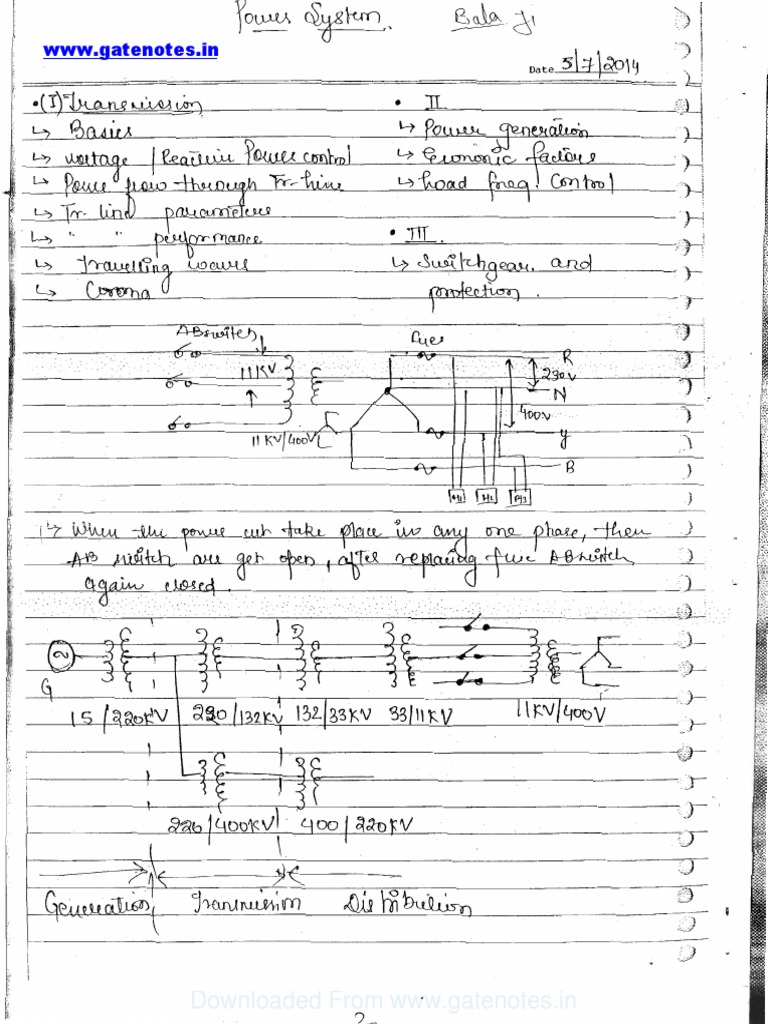 Power System Bala Ji
www.gatenotes.in
Date 5/7/2014
• (I) Transmission
↳ Basics
↳ voltage / Reactive Power control
↳ Power flow through Tr-line
↳ Tr. line parameters
↳ " " performance
↳ Travelling waves
↳ Corona
• II
↳ Power generation
↳ Economic factors
↳ Load freq. Control
• III
↳ Switchgear and
protection.
AB switch
Fuse
R
11KV
230V
N
400V
11KV/400V
Y
B
H1 H2
↳ When the power cut take place in any one phase, then
AB switch are get open, after replacing fuse AB switch
again closed.
G
15/220KV 220/132KV 132/33KV 33/11KV 11KV/400V
220/400KV 400/220KV
Generation Transmission Distribution
Downloaded From www.gatenotes.in
2